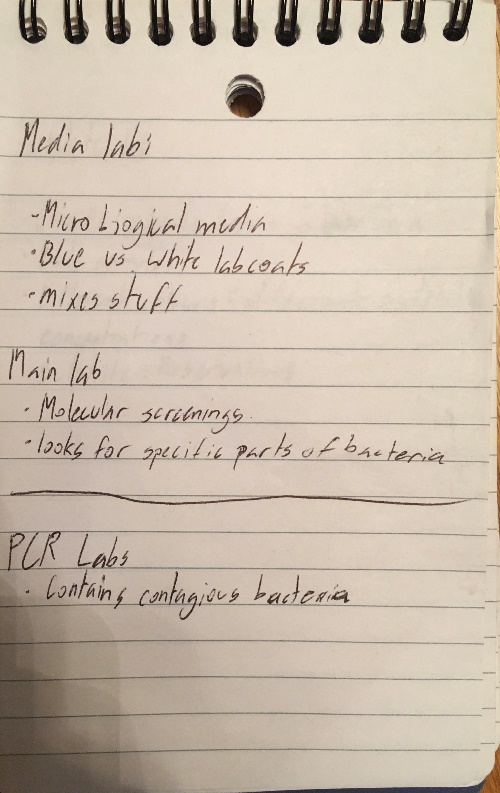 Media lab:
-Micro biogical media
·Blue vs. white labcoats
·mixes stuff
Main lab
· Molecular screenings.
·looks for specific parts of bacteria
PCR Labs
· Contains contagious bacteria